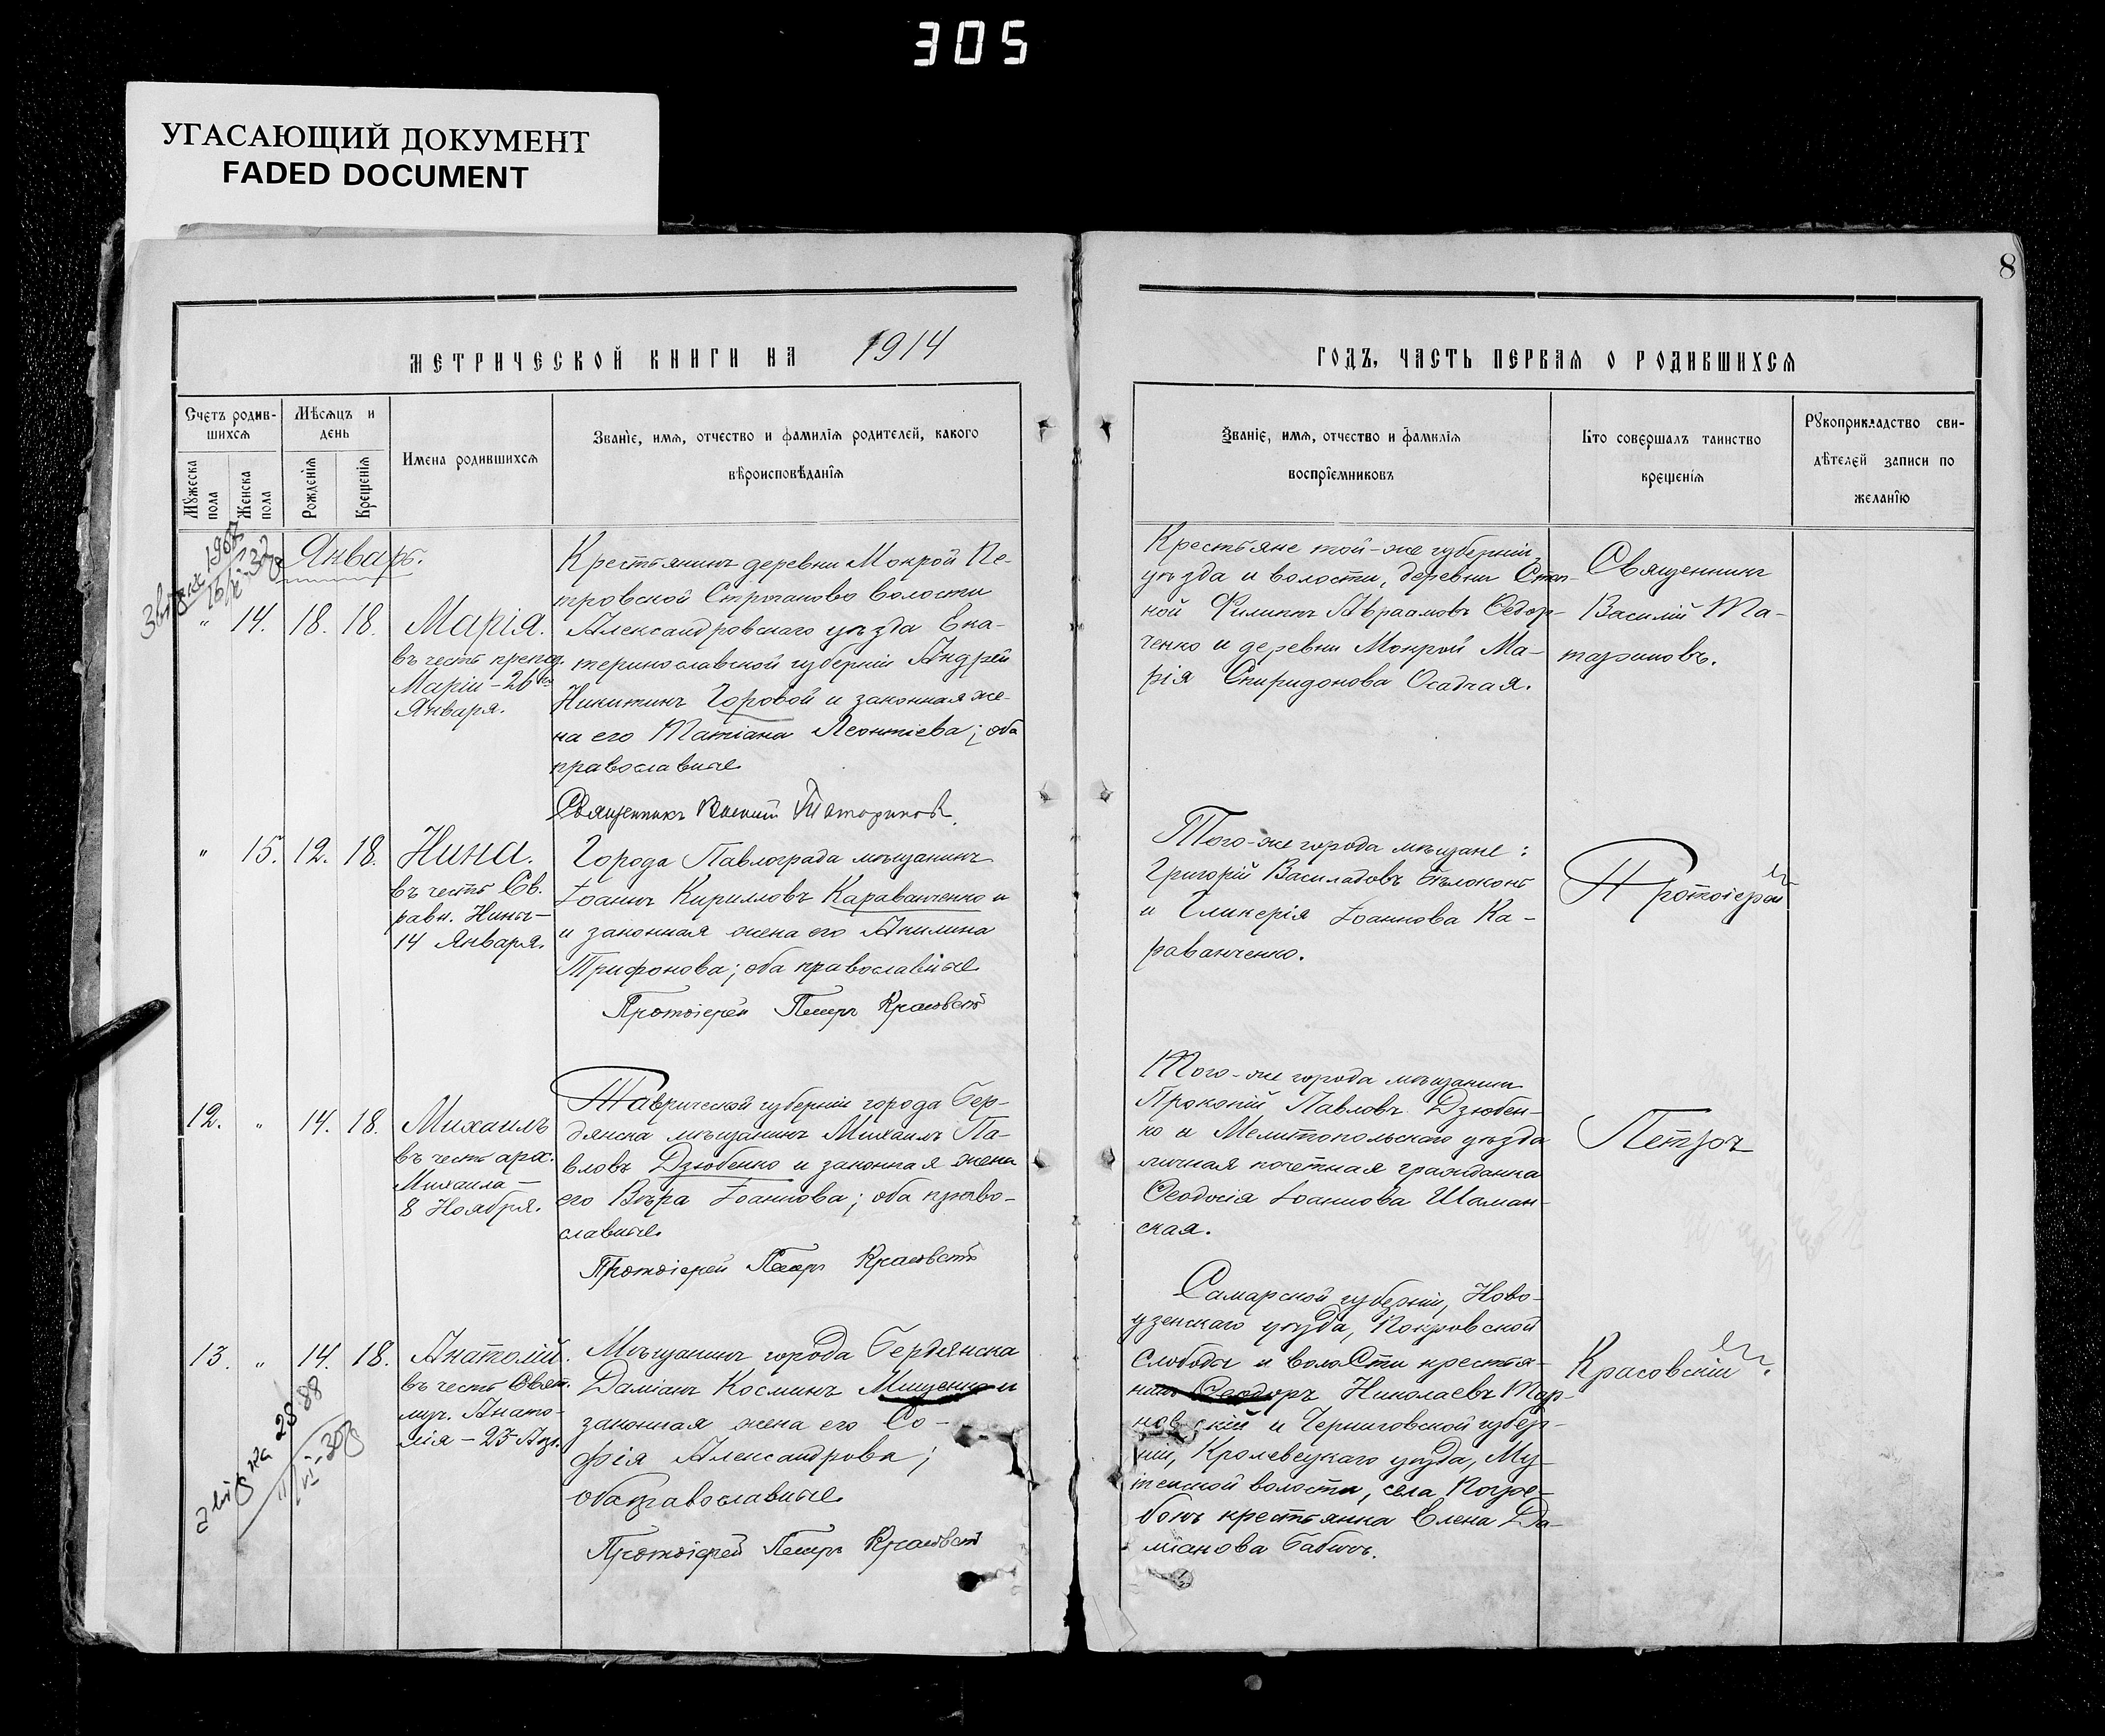 305
УГАСАЮЩИЙ ДОКУМЕНТ
FADED DOCUMENT
8
МЕТРИЧЕСКОЙ КНИГИ НА 1914
ГОДЪ, ЧАСТЬ ПЕРВАЯ О РОДИВШИХСЯ
Счетъ родив-
шихся
Мужеска
пола
Женска
пола
Мѣсяцъ и
день
Рожденія
Крещенія
Имена родившихся
Званіе, имя, отчество и фамилія родителей, какого
вѣроисповѣданія
Званіе, имя, отчество и фамилія
воспріемниковъ
Кто совершалъ таинство
крещенія
Рукоприкладство сви-
дѣтелей записи по
желанію
Январь.
" 14. 18. 18.
Марія.
въ честь препод.
Маріи – 26го
Января.
Крестьянинъ деревни Мокрой Пе-
тровской волости
Александровскаго уѣзда Ека-
теринославской губерніи Андрей
Никитинъ Горовой и законная же-
на его Татіана Леонтіева; оба
православные
Священникъ Василій Татариновъ.
Крестьяне той-же губерніи,
уѣзда и волости, деревни Степ-
ной Филиппъ Авраамовъ Федор-
ченко и деревни Мокрой Ма-
рія Спиридонова Осадчая.
Священникъ
Василій Та-
тариновъ.
" 15. 12. 18.
Нина.
въ честь Св.
равн. Нины –
14 Января.
Города Павлограда мѣщанинъ
Іоаннъ Кирилловъ Караванченко и
и законная жена его Акилина
Трифонова; оба православные
Протоіерей Петръ Красовскій
Того-же города мѣщане:
Григорій Бѣлоконь
и Гликерія Іоаннова Ка-
раванченко.
Протоіерей
12. " 14. 18.
Михаилъ
въ честь арх.
Михаила –
8 Ноября.
Таврической губерніи города Бер-
дянска мѣщанинъ Михаилъ Па-
вловъ Дзюбенко и законная жена
его Вѣра Іоаннова; оба право-
славные.
Протоіерей Петръ Красовскій
Того-же города мѣщанинъ
Прокопій Павловъ Дзюбен-
ко и Мелитопольскаго уѣзда
личная почетная гражданка
Феодосія Іоаннова Шаман-
ская.
Петръ
13. " 14. 18.
Анатолій.
въ честь Свят.
муч. Анато-
лія – 23 Апр.
Мѣщанинъ города Бердянска
Даміанъ Косминъ Мищенко и
законная жена его Со-
фія Александрова;
оба православные.
Протоіерей Петръ Красовскій
Самарской губерніи, Ново-
узенскаго уѣзда, Покровской
слободы и волости крестья-
нинъ Феодоръ Николаевъ Тар-
новскій и Черниговской губер-
ніи, Кролевецкаго уѣзда,
волости, села
крестьянка Елена Да-
міанова Бабичъ.
Красовскій.